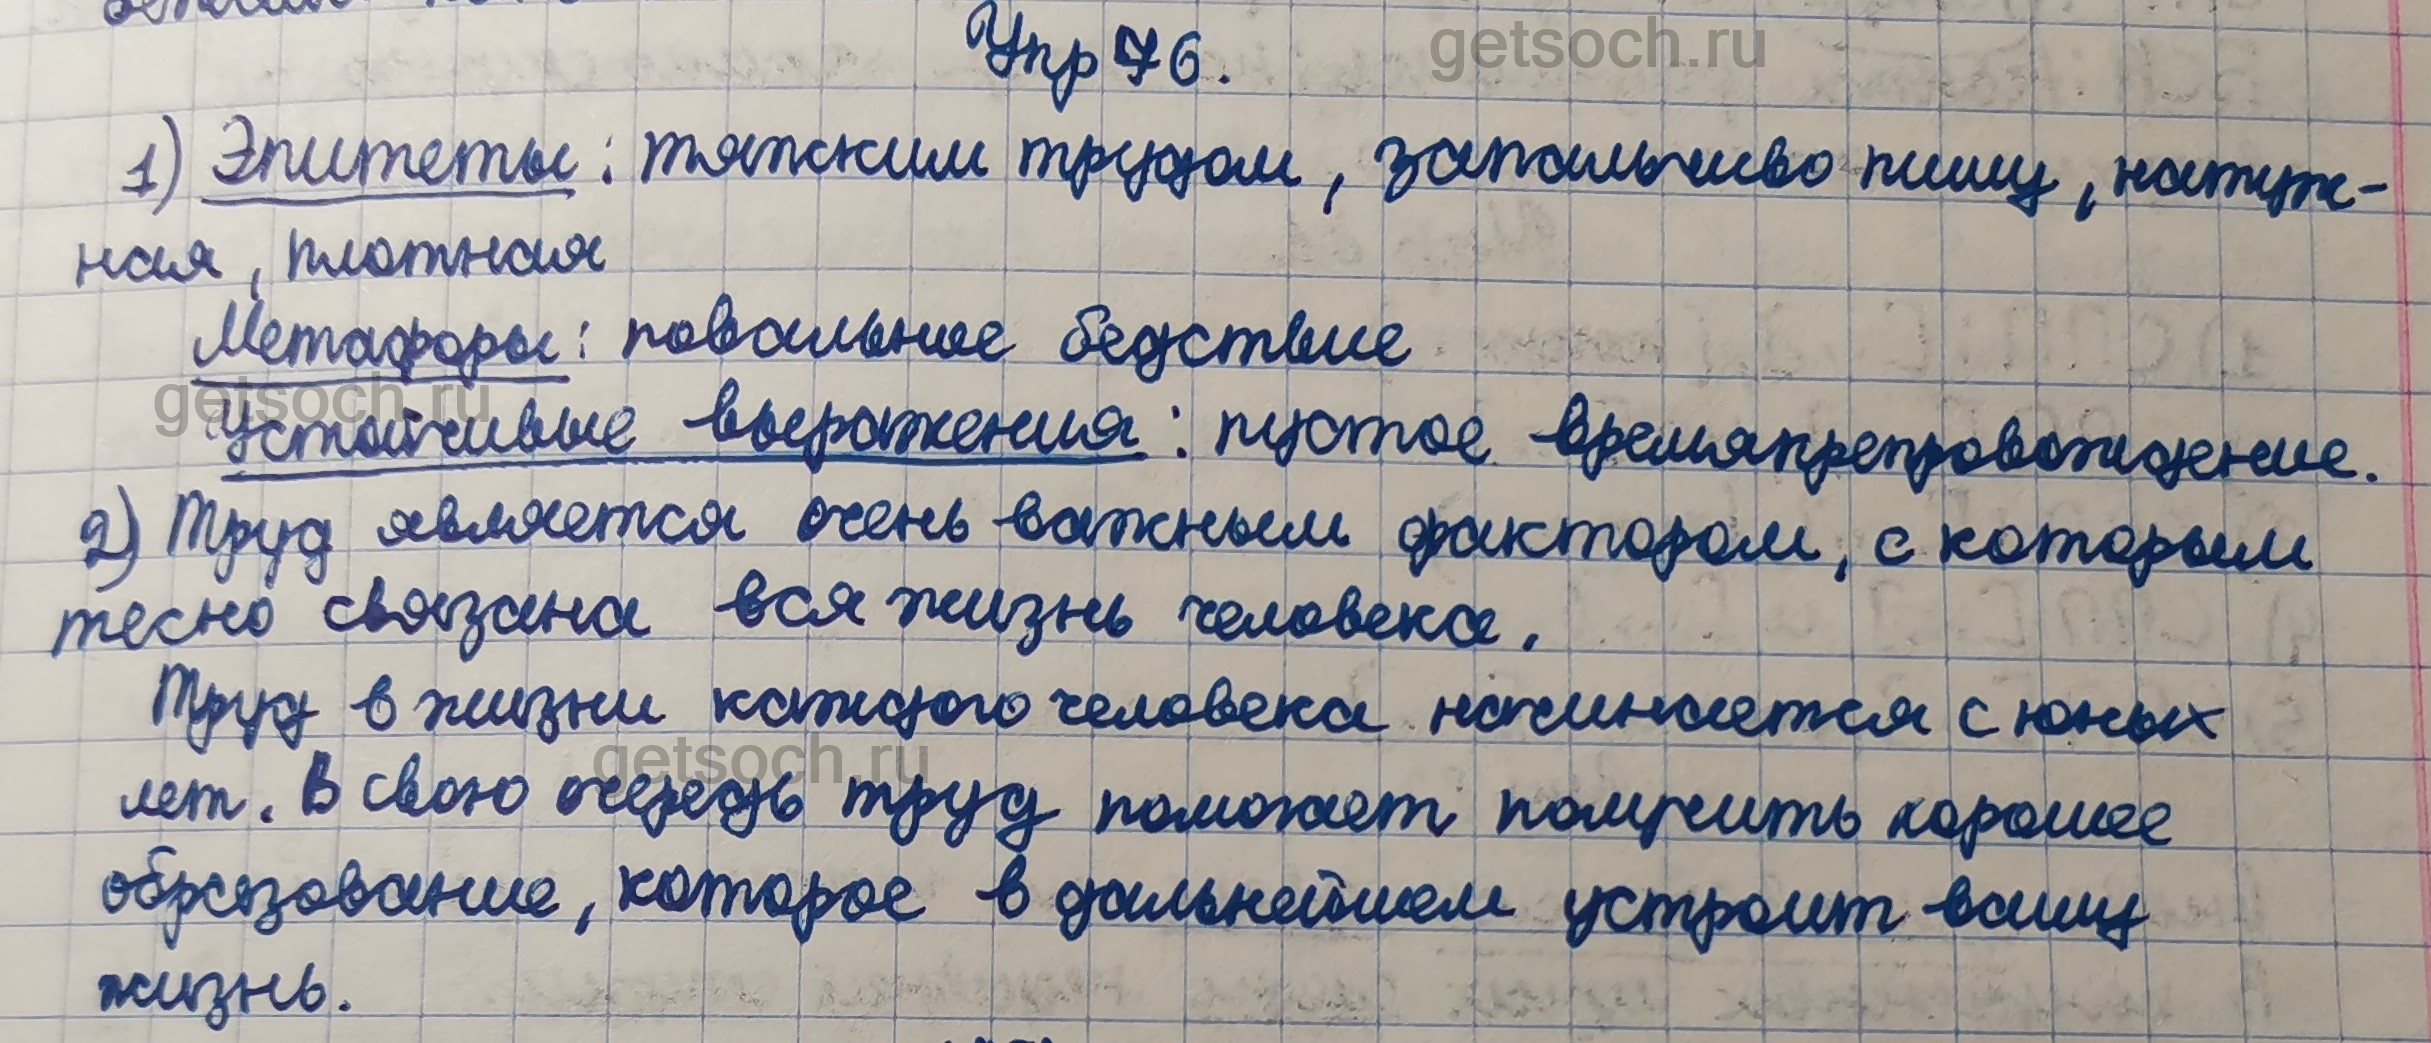 Упр 76.
getsoch.ru
1) Эпитеты: тяжким трудом, запальчиво пишу, натуж-
ная, плотная
Метафоры: повальное бедствие
getsoch.ru
Устойчивые выражения: пустое времяпрепровождение.
2) Труд является очень важным фактором, с которым
тесно связана вся жизнь человека.
Труд в жизни каждого человека начинается с юных
getsoch.ru
лет. В свою очередь труд поможет получить хорошее
образование, которое в дальнейшем устроит вашу
жизнь.